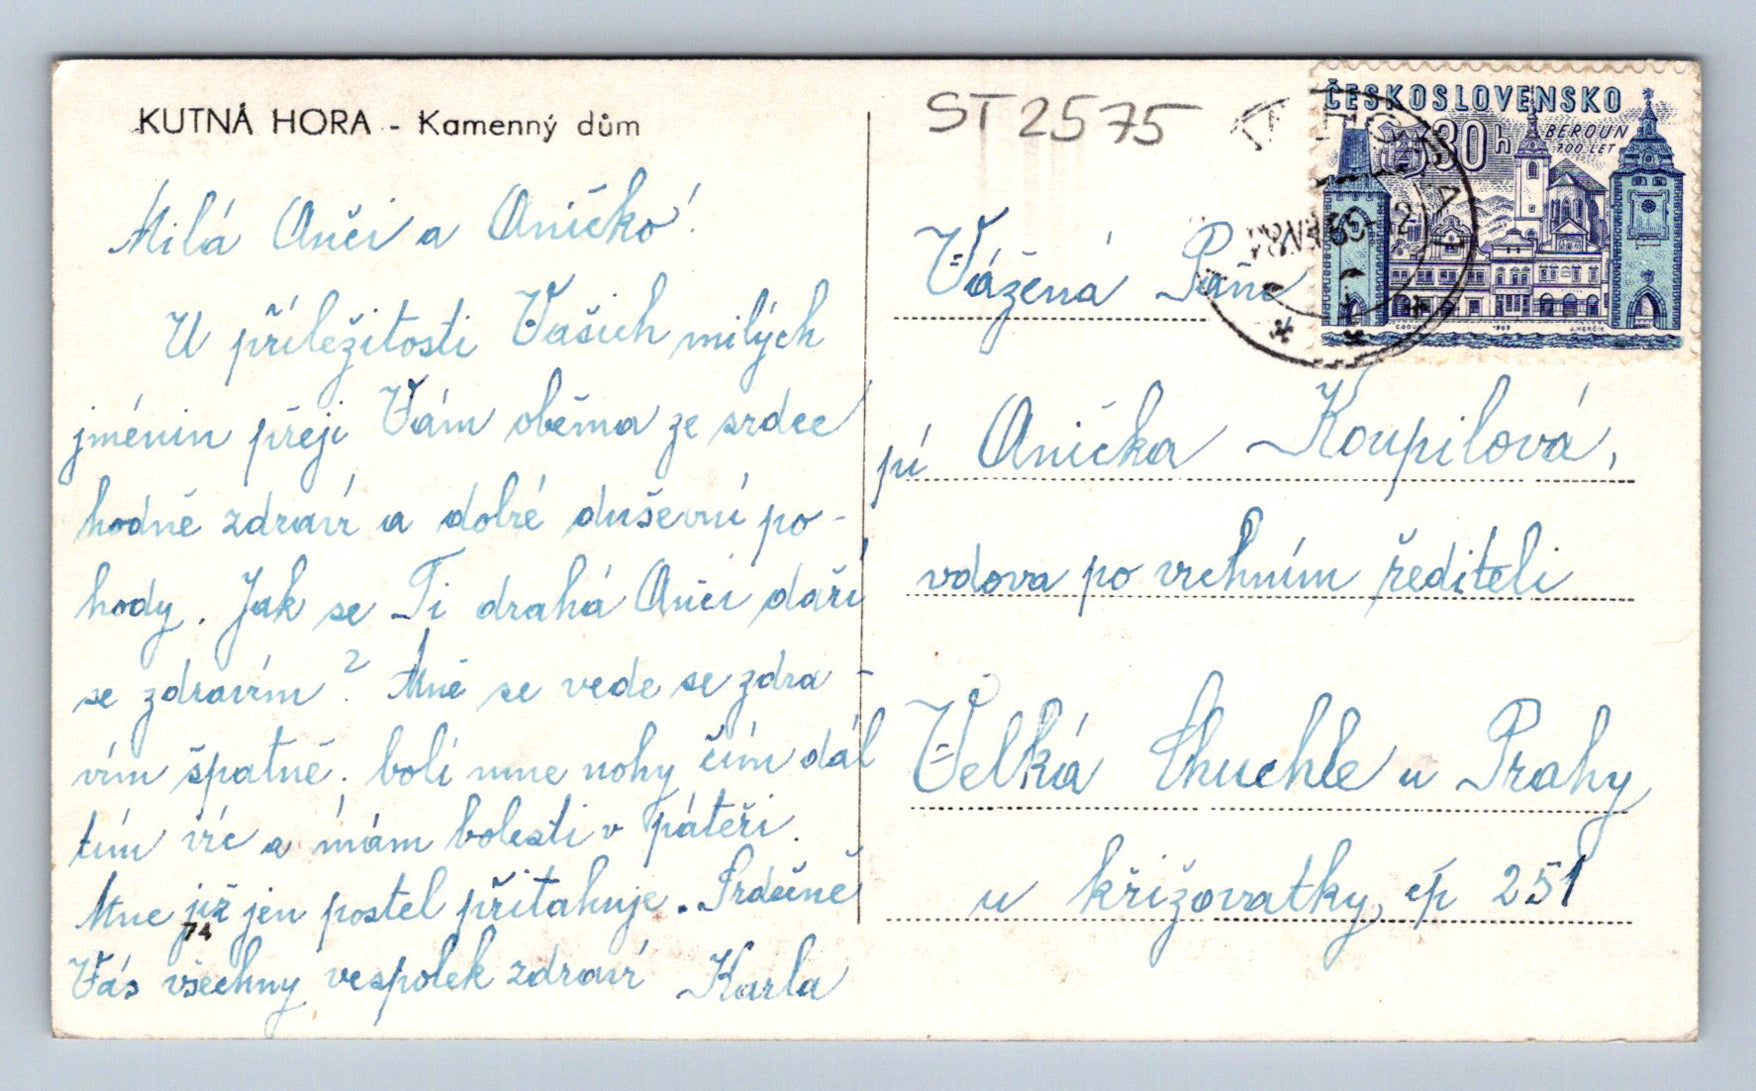 KUTNÁ HORA - Kamenný dům
Milá Anči a Aničko!
U příležitosti Vašich milých
jmenin přeji Vám oběma ze srdce
hodně zdraví a dobré duševní po-
hody. Jak se Ti drahá Anči daří
se zdravím? Mně se vede se zdra-
vím špatně. bolí mne nohy čím dál
tím víc a mám bolesti v páteři.
Mne již jen postel přitahuje. Srdečně
74
Vás všechny vespolek zdraví Karla
ST2575
ČESKOSLOVENSKO
30h
BEROUN
700 LET
1965
J. HERČÍK
Vážená Paní
pí Anička Koupilová,
vdova po vrchním řediteli
Velká Chuchle u Prahy
u křižovatky, čp 251